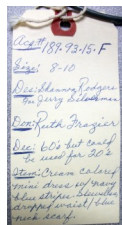 Acs# 189-93-15.F
Size: 8-10
Des: Shannon Rodgers
for Jerry Silverman
Don: Ruth Frazier
Dec: 60's but could
be used for 20's
Item: Cream colored
mini dress w/ navy
blue stripes. Sleeveless
dropped waist/ blue
neck scarf.